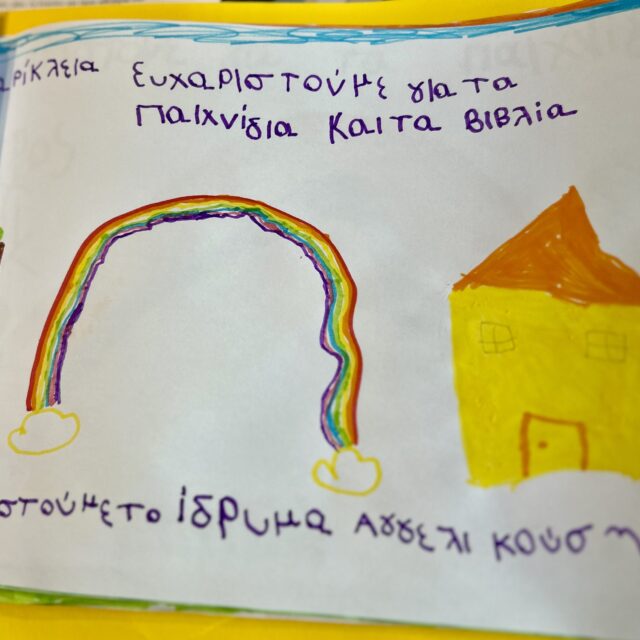 αρίκλεια Ευχαριστούμε για τα
παιχνίδια και τα βιβλία
στούμε το ίδρυμα Αγγελικούση